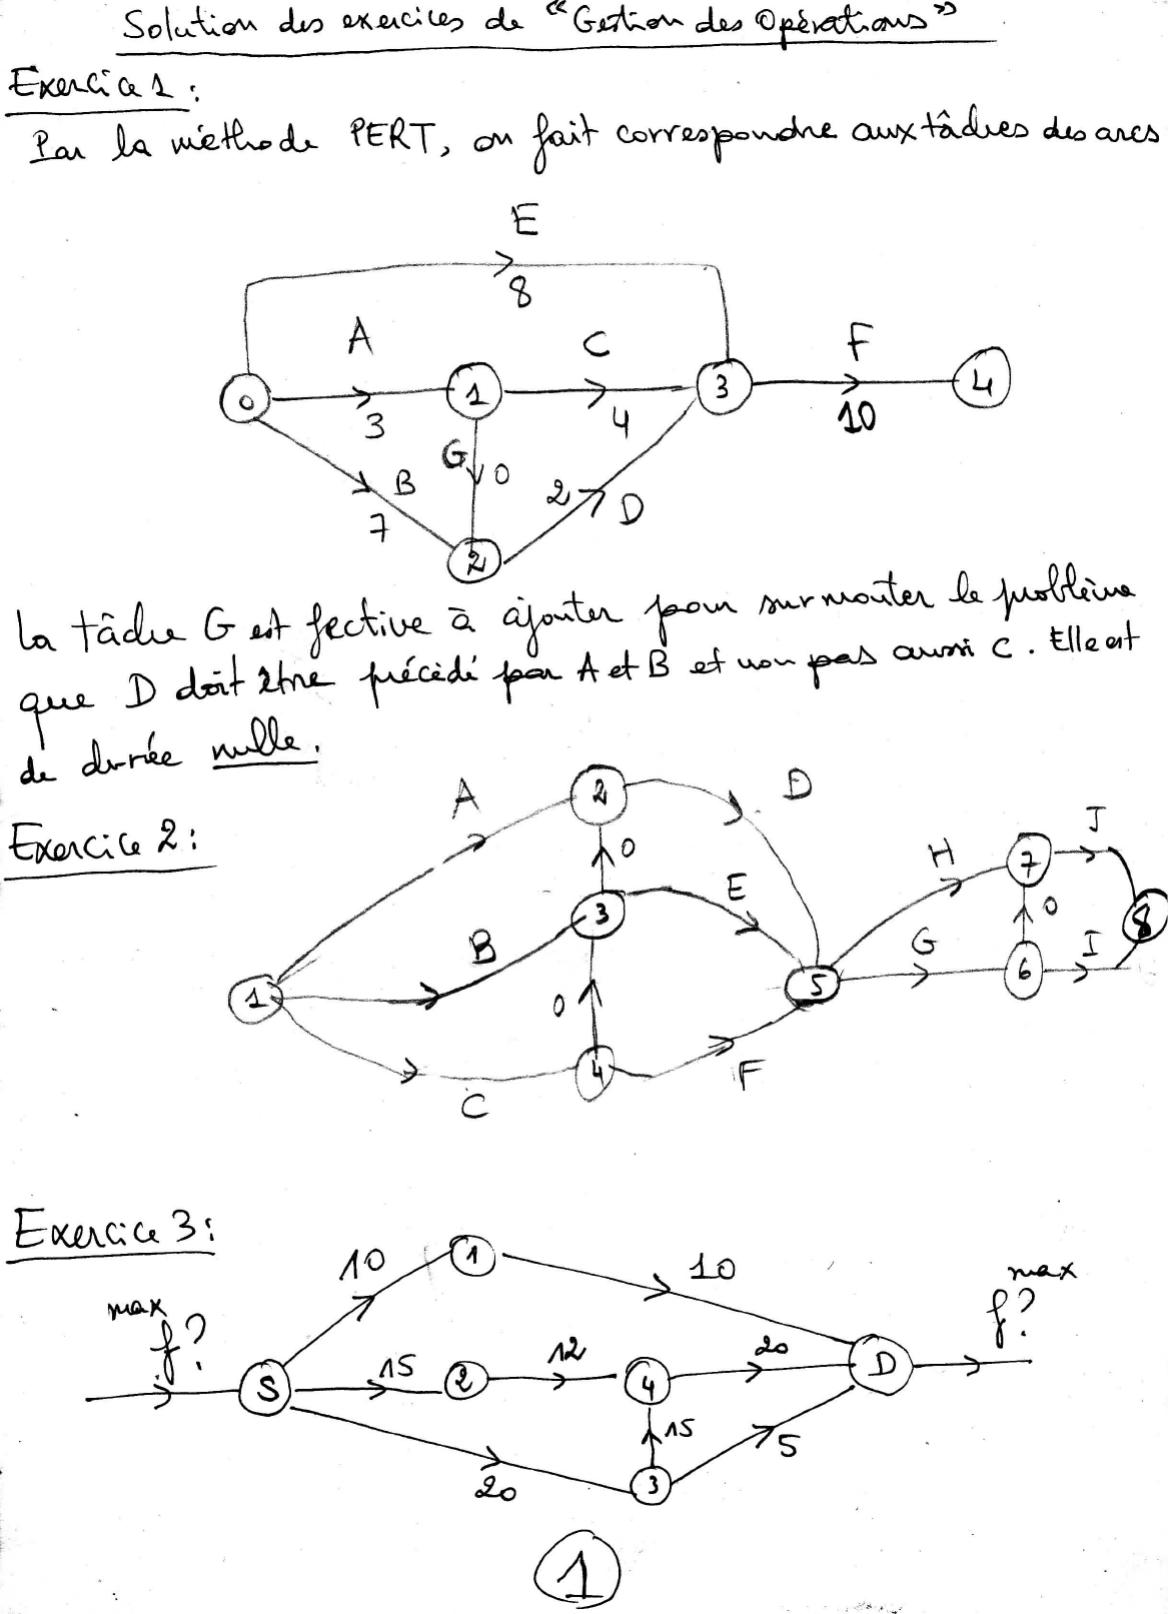 Solution des exercices de "Gestion des Opérations"
Exercice 1 :
Par la méthode PERT, on fait correspondre aux tâches des arcs
E
8
A
C
F
0
1
3
4
3
4
10
G
0
B
7
2
D
2
La tâche G est fective à ajouter pour surmonter le problème
que D doit être précédé par A et B et non pas aussi C. Elle est
de durée nulle.
Exercice 2 :
A
2
D
0
H
7
J
3
E
B
0
8
1
G
6
I
5
0
4
F
C
Exercice 3 :
10
1
10
max
f?
max
f?
S
15
2
12
4
20
D
15
5
20
3
1